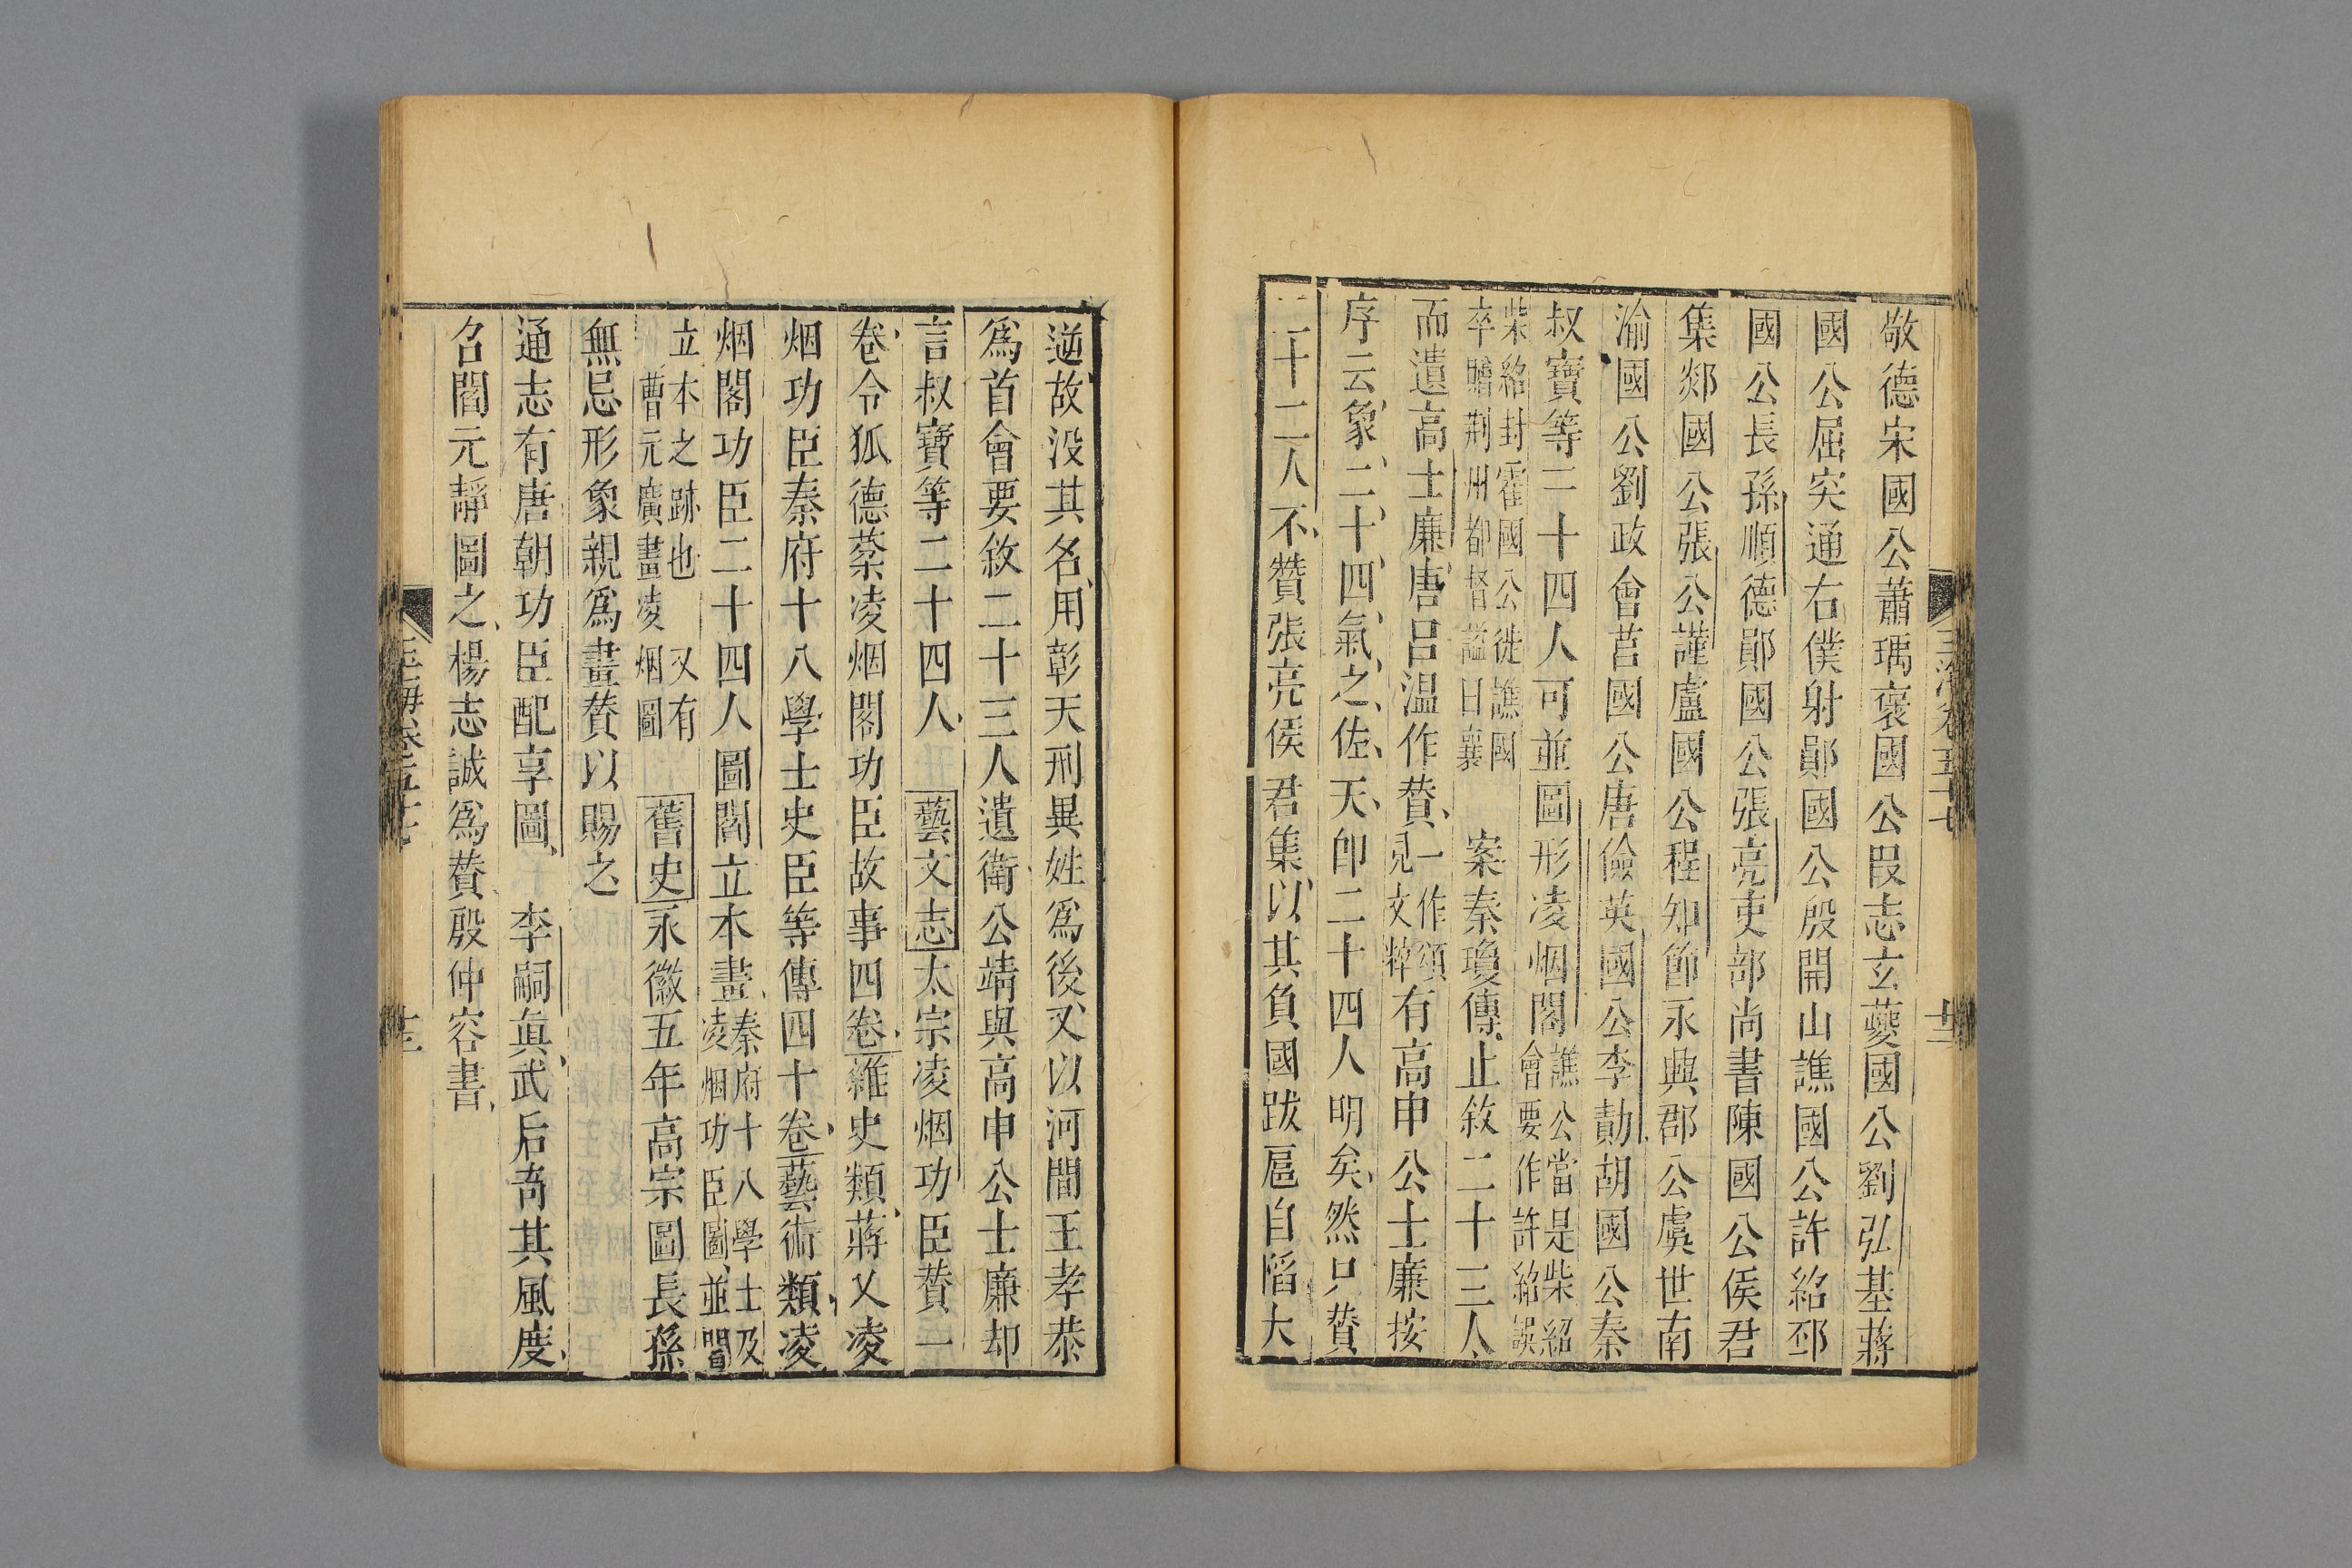 敬德宋國公蕭瑀褒國公段志玄夔國公劉弘基蔣
國公屈突通右僕射鄖國公殷開山譙國公許紹邳
國公長孫順德鄖國公張亮吏部尚書陳國公侯君
集郯國公張公謹盧國公程知節永興郡公虞世南
渝國公劉政會莒國公唐儉英國公李勣胡國公秦
叔寶等二十四人可並圖形凌烟閣譙公當是柴紹
會要作許紹誤
柴紹封霍國公徙譙國
卒贈荆州都督謚曰襄
案秦瓊傳止敘二十三人
而遺高士廉唐呂温作贊一作頌
見文粹有高申公士廉按
序云象二十四氣之佐天卽二十四人明矣然只贊
二十二人不贊張亮侯君集以其負國跋扈自陷大
逆故没其名用彰天刑異姓爲後又以河間王孝恭
爲首會要敘二十三人遺衛公靖與高申公士廉却
言叔寶等二十四人藝文志太宗凌烟功臣贊一
卷令狐德棻凌烟閣功臣故事四卷雜史類蔣乂凌
烟功臣秦府十八學士史臣等傳四十卷藝術類凌
烟閣功臣二十四人圖閻立本畫秦府十八學士及
凌烟功臣圖並閻
立本之跡也 又有
曹元廣畫凌烟圖
舊史永徽五年高宗圖長孫
無忌形象親爲畫贊以賜之
通志有唐朝功臣配享圖 李嗣眞武后奇其風度
名閻元靜圖之楊志誠爲贊殷仲容書
玉海卷五十七
十三